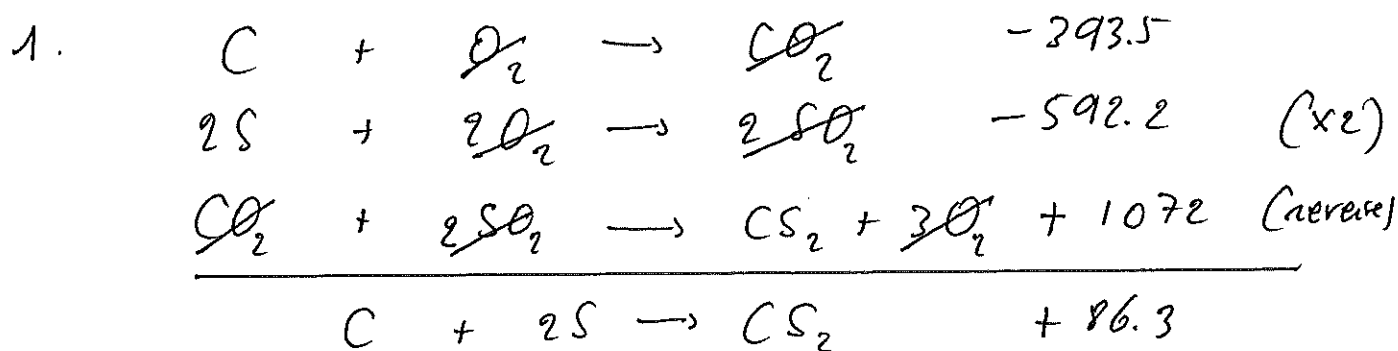 1. C + O₂ → CO₂ -393.5
2S + 2O₂ → 2SO₂ -592.2 (x2)
CO₂ + 2SO₂ → CS₂ + 3O₂ + 1072 (reverse)
C + 2S → CS₂ + 86.3